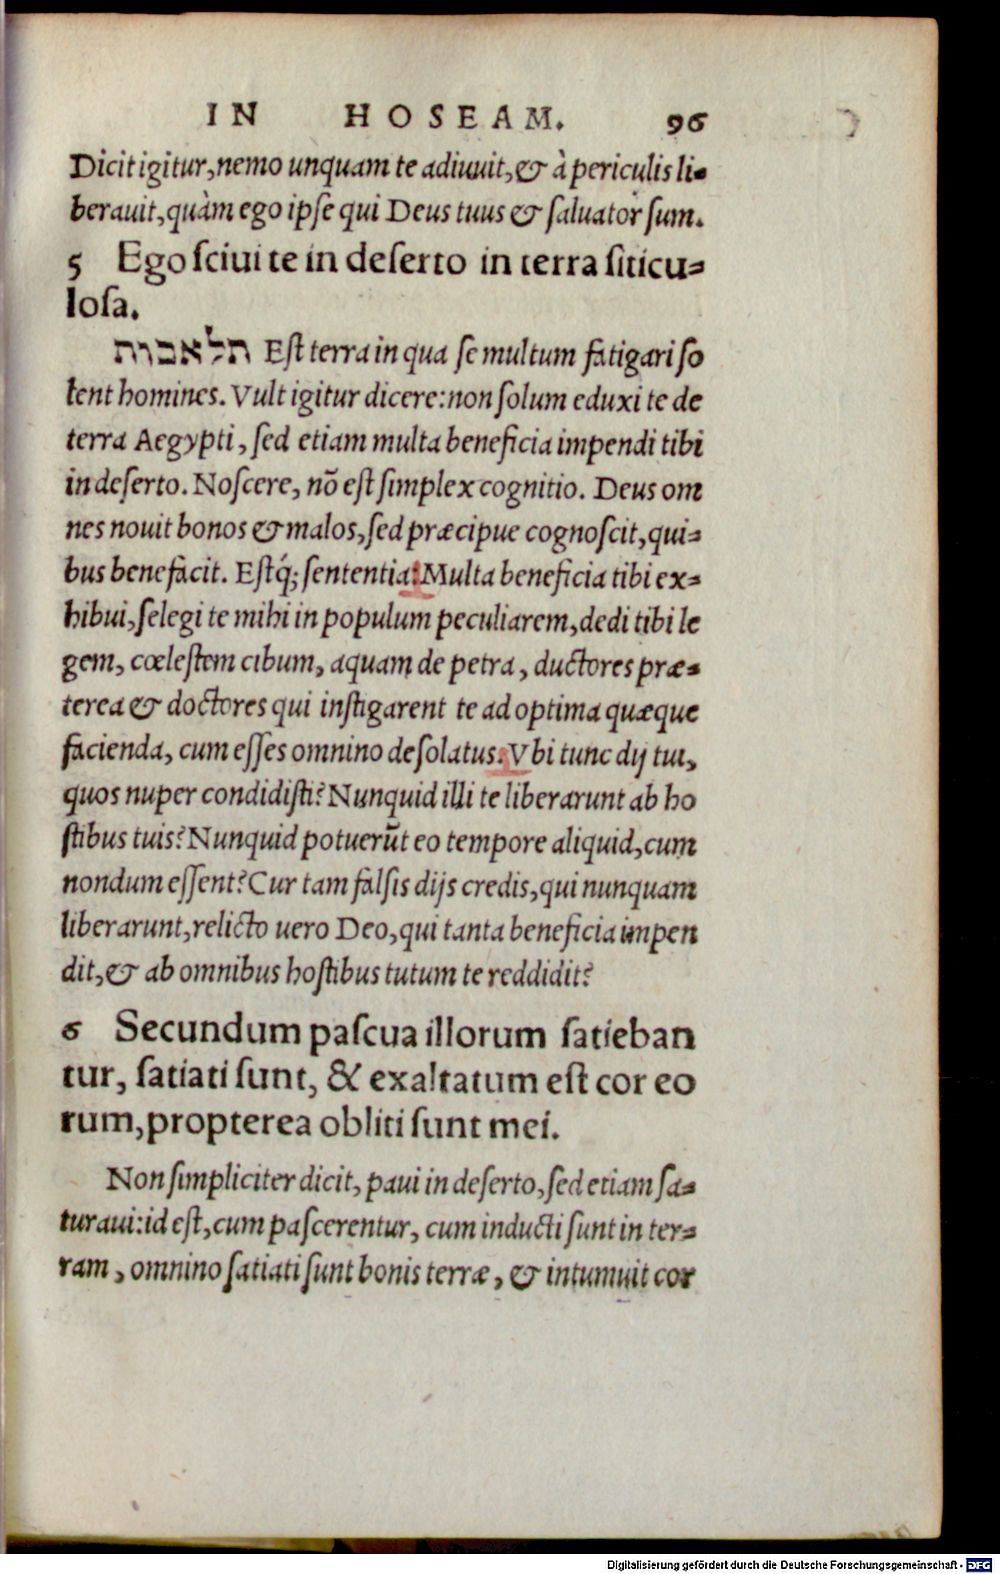 IN HOSEAM. 96
Dicit igitur, nemo unquam te adiuuit, & à periculis li-
berauit, quàm ego ipse qui Deus tuus & saluator sum.
5 Ego sciui te in deserto in terra siticu-
losa.
תלאבות Est terra in qua se multum fatigari so
lent homines. Vult igitur dicere: non solum eduxi te de
terra Aegypti, sed etiam multa beneficia impendi tibi
in deserto. Noscere, nõ est simplex cognitio. Deus om
nes nouit bonos & malos, sed præcipue cognoscit, qui-
bus benefacit. Estq́; sententia: Multa beneficia tibi ex-
hibui, selegi te mihi in populum peculiarem, dedi tibi le
gem, cœlestem cibum, aquam de petra, ductores præ-
terea & doctores qui instigarent te ad optima quæque
facienda, cum esses omnino desolatus. Vbi tunc dij tui,
quos nuper condidisti? Nunquid illi te liberarunt ab ho
stibus tuis? Nunquid potuerũt eo tempore aliquid, cum
nondum essent? Cur tam falsis dijs credis, qui nunquam
liberarunt, relicto uero Deo, qui tanta beneficia impen
dit, & ab omnibus hostibus tutum te reddidit?
6 Secundum pascua illorum satieban
tur, satiati sunt, & exaltatum est cor eo
rum, propterea obliti sunt mei.
Non simpliciter dicit, paui in deserto, sed etiam sa-
turaui: id est, cum pascerentur, cum inducti sunt in ter-
ram, omnino satiati sunt bonis terræ, & intumuit cor
Digitalisierung gefördert durch die Deutsche Forschungsgemeinschaft - DFG